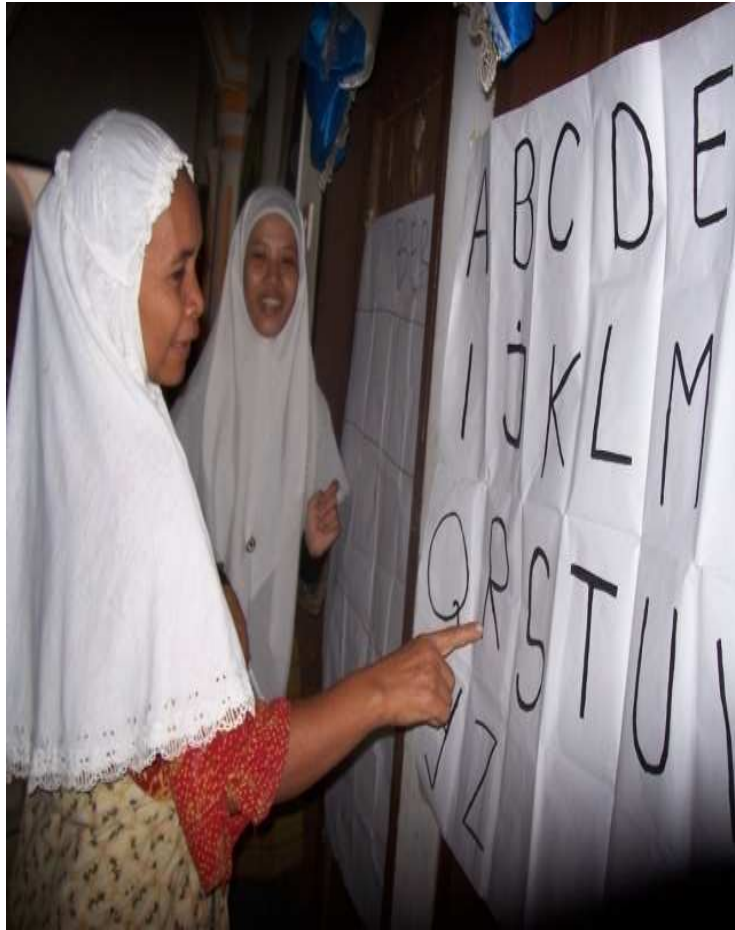 A B C D E
I j K L M
Q R S T U
y Z